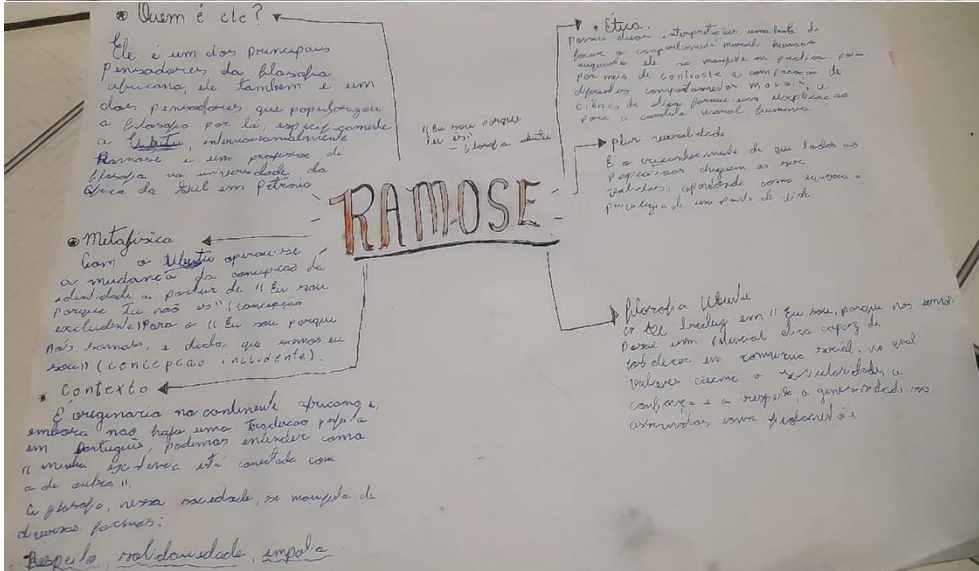 Quem é ele?
Ele é um dos principais
pensadores da filosofia
africana, ele tambem é um
dos pensadores que popularizou
a filosofia por lá, especificamente
a Ubuntu, internacionalmente
Ramose é um professor de
filosofia na universidade da
África do Sul em
Metafísica
Com o Ubuntu operou-se
a mudança da concepção da
identidade a partir de "Eu sou
porque tu não és" (concepção
excludente) Para o "Eu sou porque
nós somos, e dado que somos eu
sou" (concepção includente).
Contexto
É originaria no continente africano e,
embora não haja uma tradução
em Português, podemos entender como
"minha existência está conectada com
a de outro".
a filosofia, nessa sociedade, se manifesta de
diversas formas:
Respeito, solidariedade, empatia
"Eu sou porque
tu és"
- filosofia ubuntu
RAMOSE
Ética.
Possui duas interpretações, uma
focar o comportamento moral humano
enquanto ele se manifesta na pratica,
por meio de contraste e comparação de
diferentes comportamentos morais, a
ciência da fornece uma explicação
para a conduta moral humana
É o reconhecimento de que todas as
perspectivas devem as ser
validas, apontando como
de um ponto de
filosofia Ubuntu
em "Eu sou, porque nós somos)
Possui um ética capaz de
um social, no qual
valores como a
confiança e a respeito, a generosidade são
como